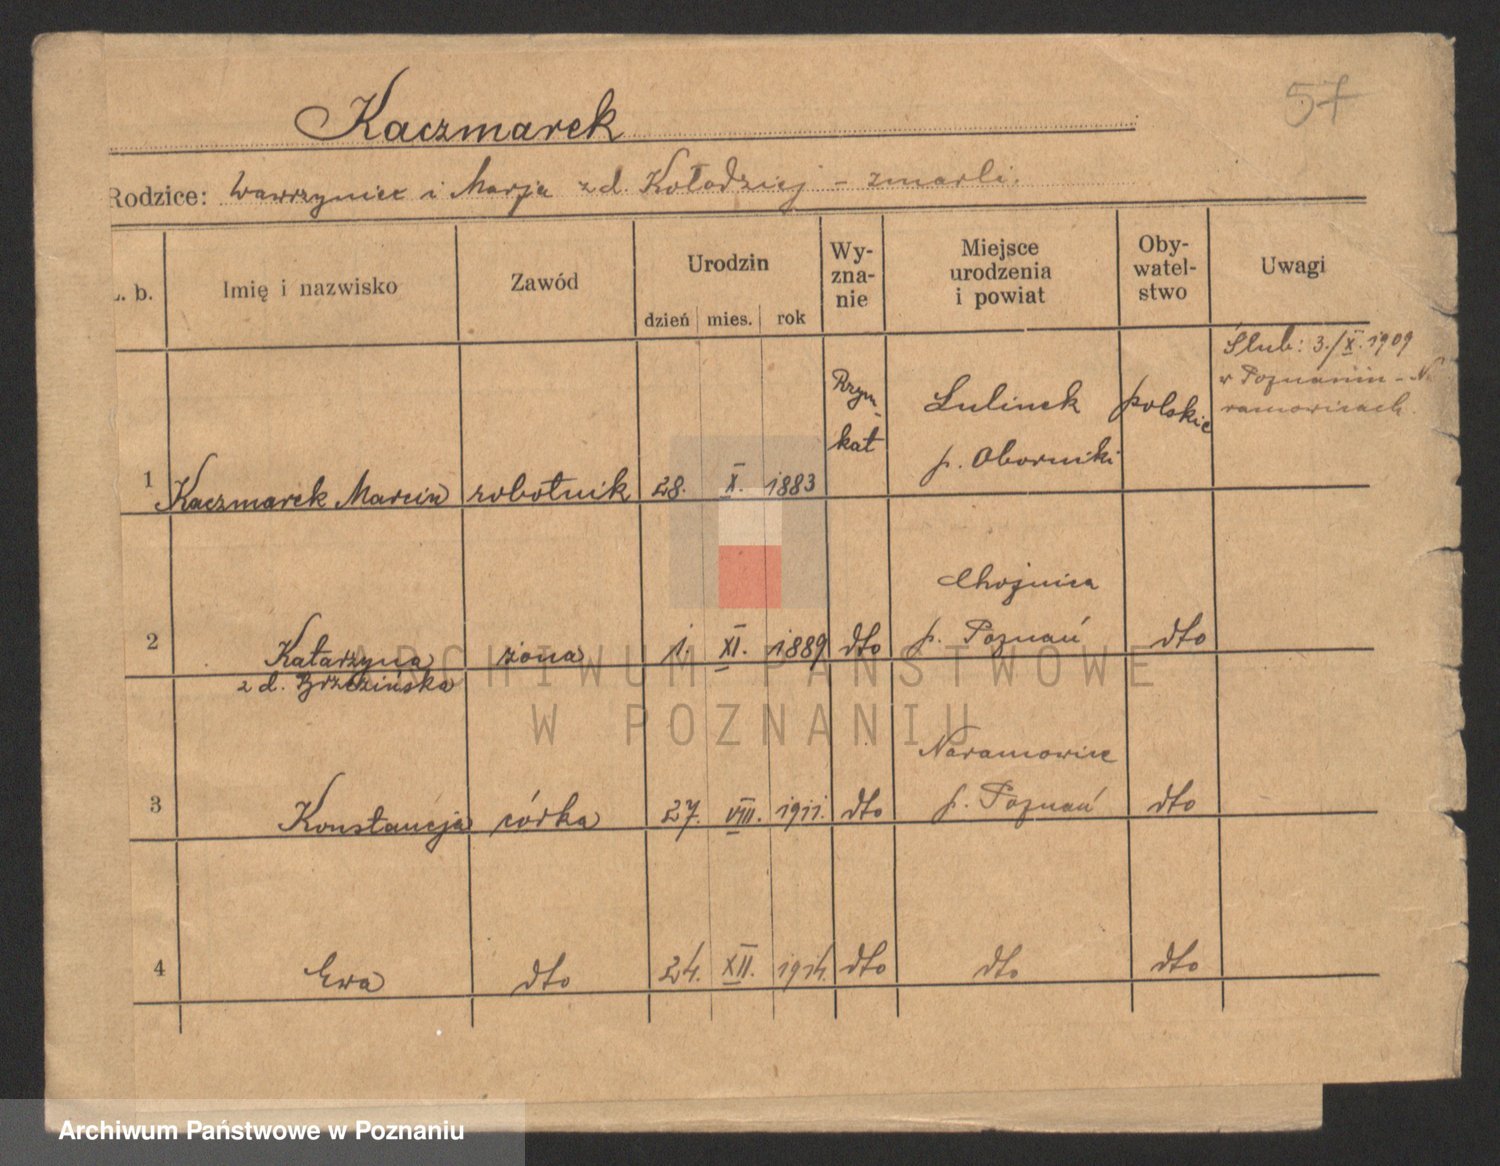 57
Kaczmarek
Rodzice: Wawrzyniec i Marja z d. Kołodziej – zmarli.
L. b. Imię i nazwisko Zawód Urodzin dzień mies. rok Wy-zna-nie Miejsce urodzenia i powiat Oby-watel-stwo Uwagi
Ślub: 3./X. 1909
w Poznaniu – Na
ramowicach.
Rzym.-kat Lulinek polskie
p. Oborniki
1 Kaczmarek Marcin robotnik 28. X. 1883
Chojnica
2 Katarzyna żona 1. XI. 1889 dto p. Poznań dto
z d. Brzezińska
Naramowice
3 Konstancja córka 27. VIII. 1911. dto p. Poznań dto
4 Ewa dto 24. XII. 1914. dto dto dto
ARCHIWUM PAŃSTWOWE
W POZNANIU
Archiwum Państwowe w Poznaniu